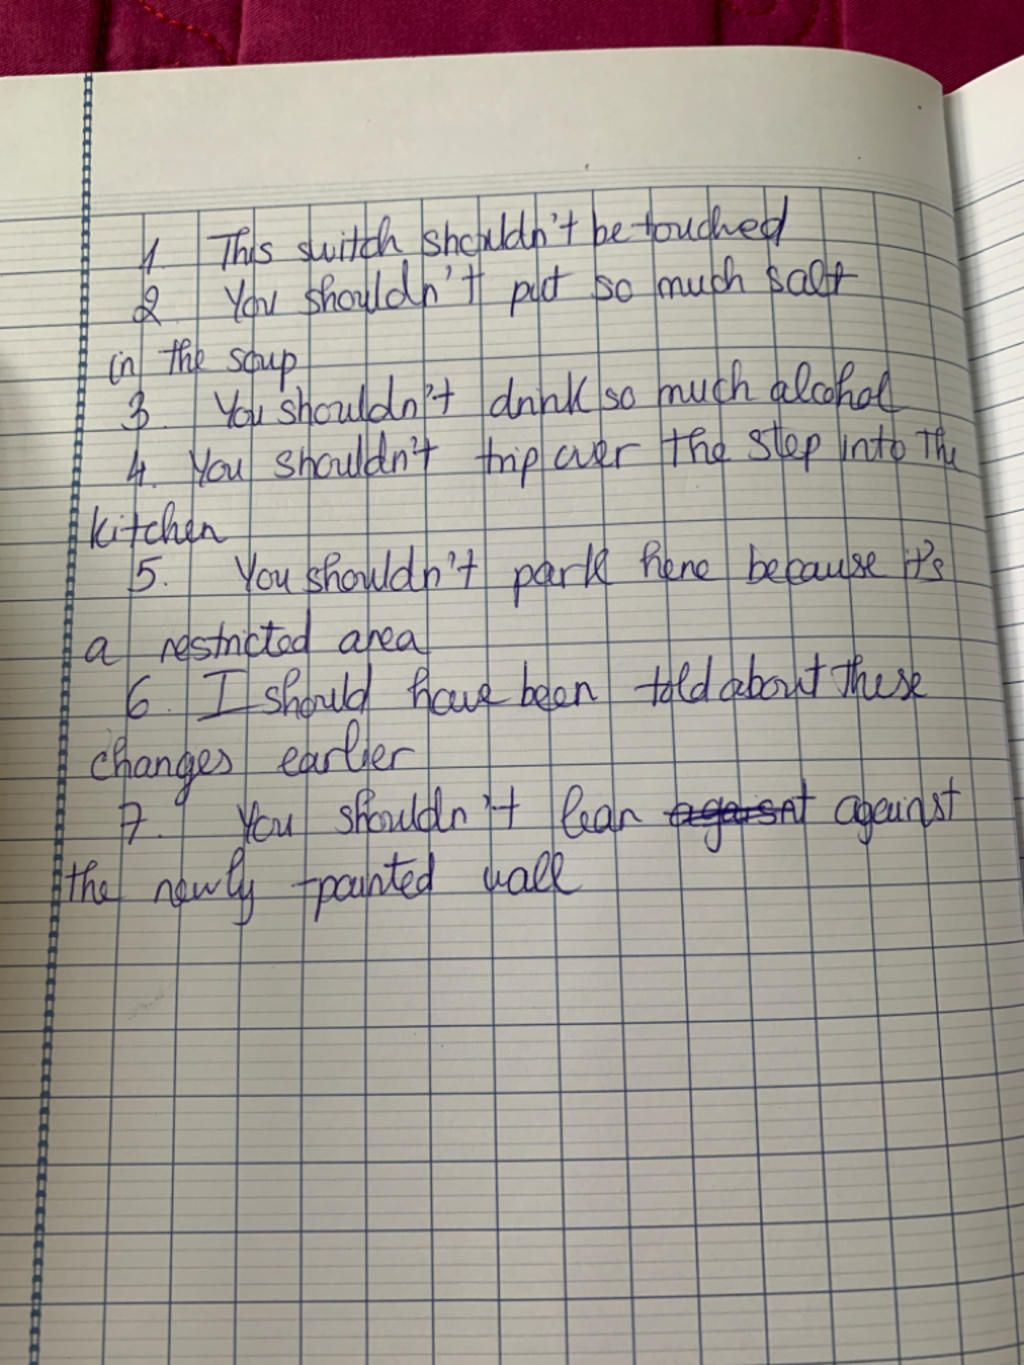 1. This switch shouldn't be touched
2 You shouldn't put so much salt
in the soup
3. You shouldn't drink so much alcohol
4. You shouldn't trip over the step into the
kitchen
5. You shouldn't park here because it's
a restricted area
6. I should have been told about these
changes earlier
7. You shouldn't lean against
the newly-painted wall